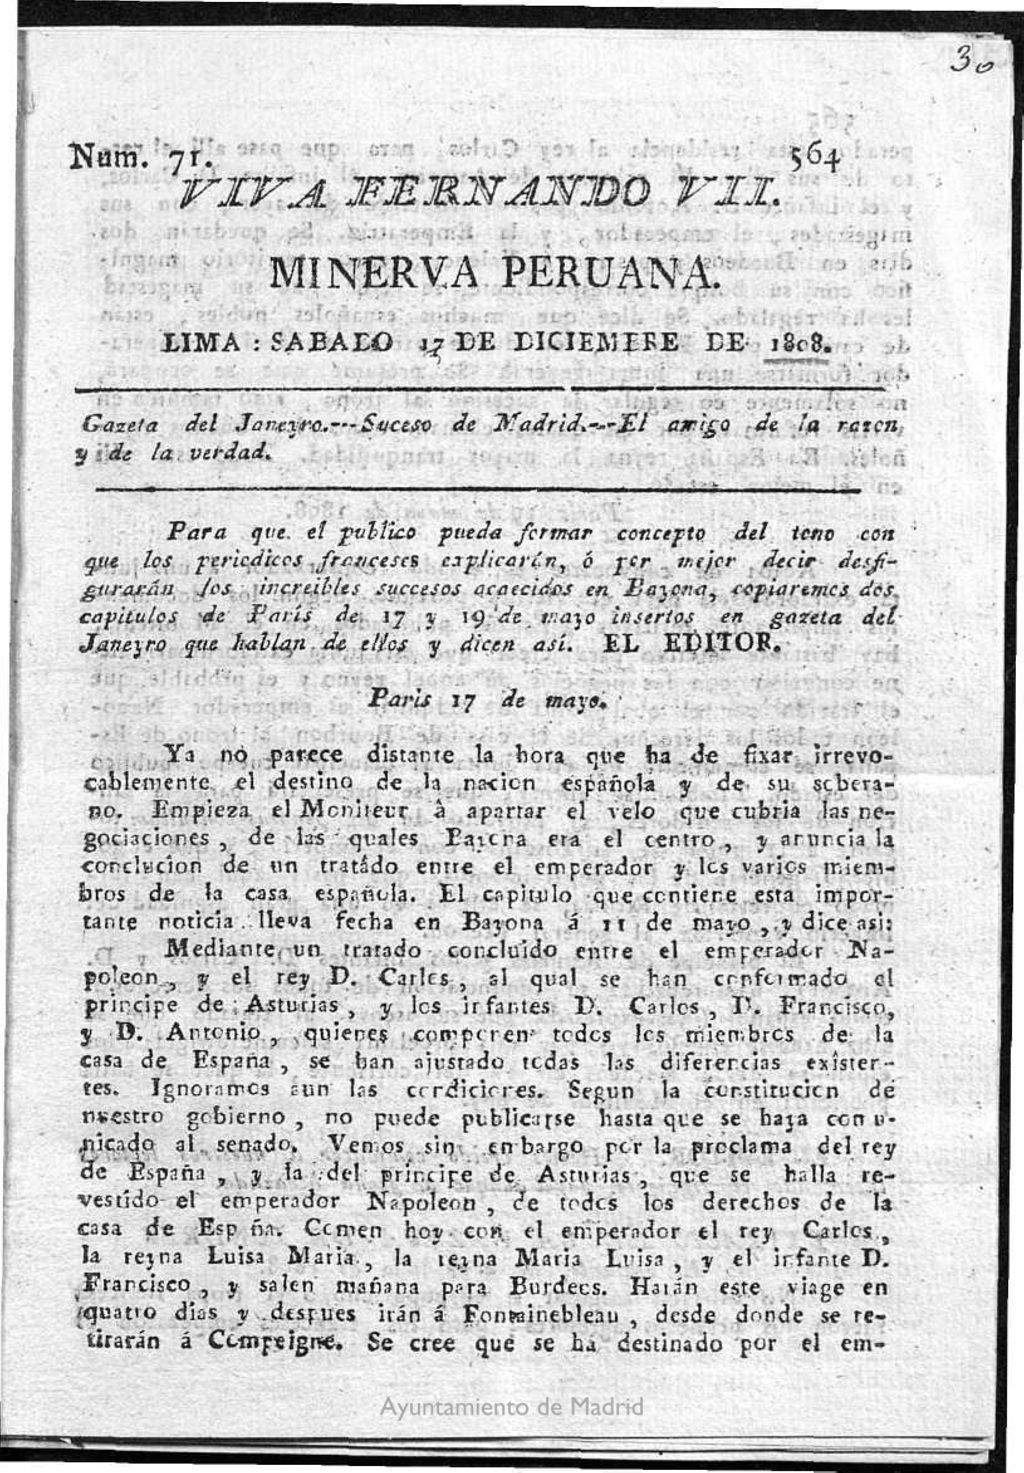 30
Num. 71. 564
VIVA FERNANDO VII.
MINERVA PERUANA.
LIMA : SABADO 17 DE DICIEMBRE DE 1808.
Gazeta del Janeyro.---Suceso de Madrid.---El amigo de la razon
y de la verdad.
Para que el publico pueda formar concepto del tono con
que los periodicos franceses explicarán, ó por mejor decir desfi-
gurarán los increibles succesos acaecidos en Bayona, copiaremos dos
capitulos de París de 17 y 19 de mayo insertos en gazeta del
Janeyro que hablan de ellos y dicen así. EL EDITOR.
Paris 17 de mayo.
Ya no parece distante la hora que ha de fixar irrevo-
cablemente el destino de la nacion española y de su sobera-
no. Empieza el Moniteur à apartar el velo que cubria las ne-
gociaciones, de las quales Bayona era el centro, y anuncia la
conclucion de un tratádo entre el emperador y los varios miem-
bros de la casa española. El capitulo que contiene esta impor-
tante noticia lleva fecha en Bayona á 11 de mayo, y dice asi:
Mediante un tratado concluido entre el emperador Na-
poleon, y el rey D. Carlos, al qual se han conformado el
principe de Asturias, y los infantes D. Carlos, D. Francisco,
y D. Antonio, quienes componen todos los miembros de la
casa de España, se han ajustado todas las diferencias existen-
tes. Ignoramos aun las condiciones. Segun la constitucion de
nuestro gobierno, no puede publicarse hasta que se haya comu-
nicado al senado. Vemos sin embargo por la proclama del rey
de España, y la del principe de Asturias, que se halla re-
vestido el emperador Napoleon, de todos los derechos de la
casa de Esp ña. Comen hoy con el emperador el rey Carlos,
la reyna Luisa Maria, la reyna Maria Luisa, y el infante D.
Francisco, y salen mañana para Burdeos. Harán este viage en
quatro dias y despues irán á Fontainebleau, desde donde se re-
tirarán á Compeigne. Se cree que se ha destinado por el em-
Ayuntamiento de Madrid